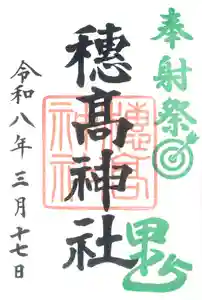 奉射祭
穗髙神社
穗高
神社
令和八年 三月十七日